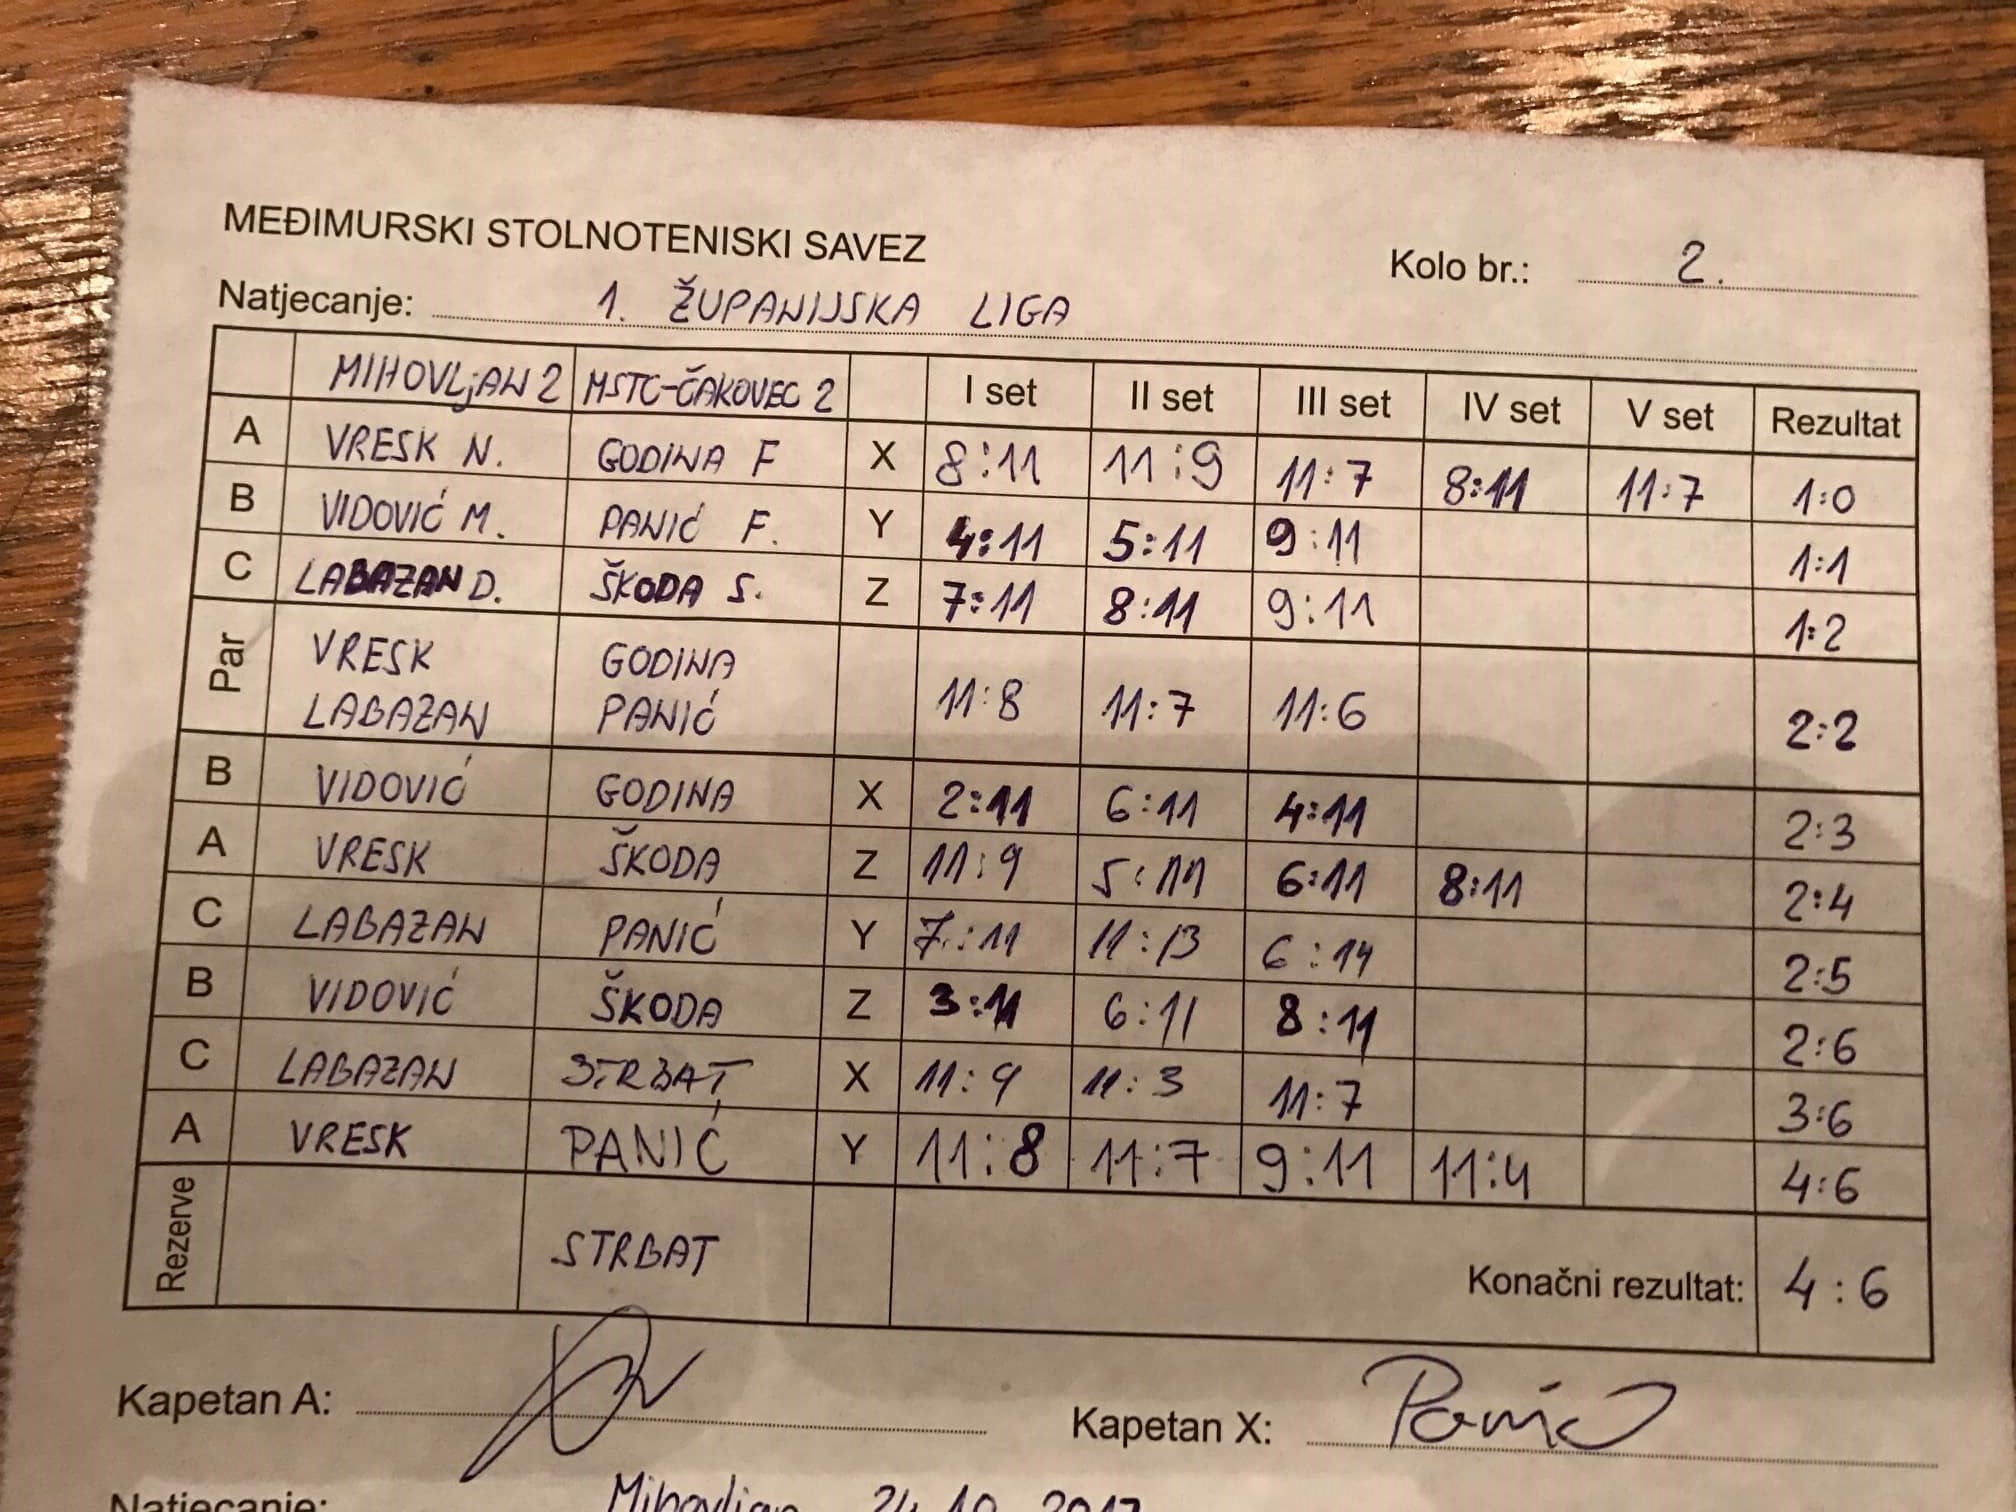 MEĐIMURSKI STOLNOTENISKI SAVEZ
Kolo br.: 2.
Natjecanje: 1. ŽUPANIJSKA LIGA
MIHOVLjAN 2 MSTC-ČAKOVEC 2 I set II set III set IV set V set Rezultat
A VRESK N. GODINA F X 8:11 11:9 11:7 8:11 11:7 1:0
B VIDOVIĆ M. PANIĆ F. Y 4:11 5:11 9:11 1:1
C LABAZAN D. ŠKODA S. Z 7:11 8:11 9:11 1:2
Par VRESK GODINA
LABAZAN PANIĆ 11:8 11:7 11:6 2:2
B VIDOVIĆ GODINA X 2:11 6:11 4:11 2:3
A VRESK ŠKODA Z 11:9 5:11 6:11 8:11 2:4
C LABAZAN PANIĆ Y 7:11 11:13 6:11 2:5
B VIDOVIĆ ŠKODA Z 3:11 6:11 8:11 2:6
C LABAZAN STRBAT X 11:9 11:3 11:7 3:6
A VRESK PANIĆ Y 11:8 11:7 9:11 11:4 4:6
Rezerve STRBAT Konačni rezultat: 4:6
Kapetan A: Kapetan X: Panić
Natjecanje: Mihovljan 24.10.2017